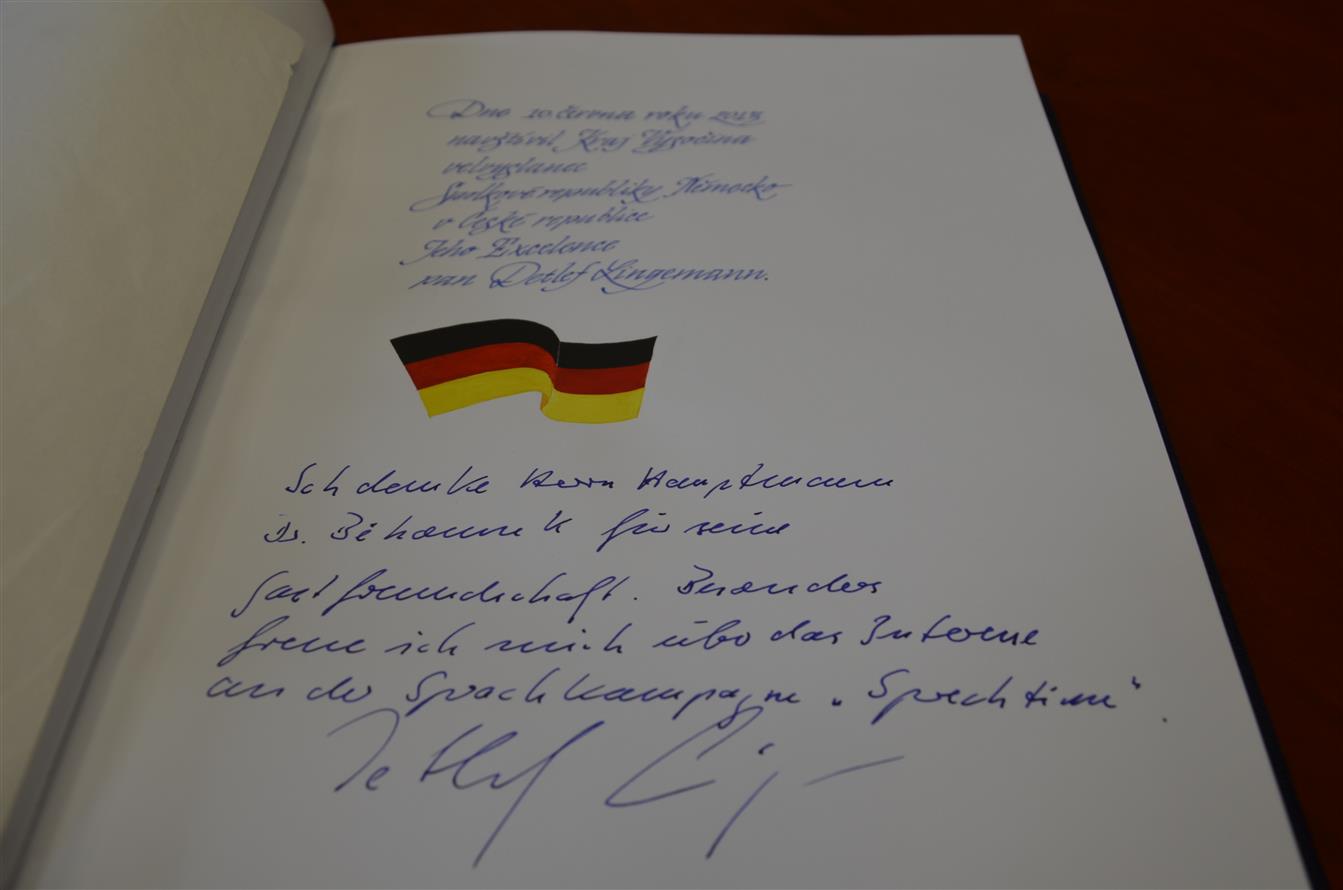 Dne 10. června roku 2013
navštívil Kraj Vysočina
velvyslanec
Spolkové republiky Německo
v České republice
Jeho Excelence
pan Detlef Lingemann.
Ich danke Herrn Hauptmann
Dr. Běhounek für seine
Gastfreundschaft. Besonders
freue ich mich über das Interesse
an der Sprachkampagne „Sprechtime“.
Detlef